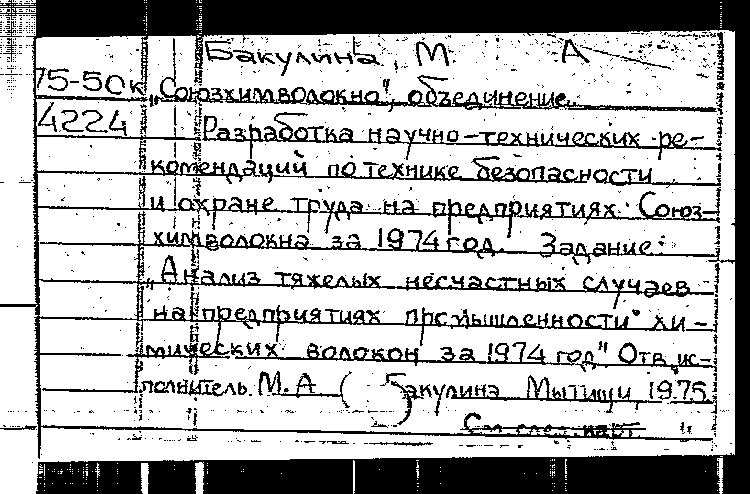 Бакулина, М. А
75-50к „Союзхимволокно", объединение.
4224 Разработка научно-технических ре-
комендаций по технике безопасности
и охране труда на предприятиях Союз-
химволокна за 1974 год. Задание:
„Анализ тяжелых несчастных случаев
на предприятиях промышленности хи-
мических волокон за 1974 год" Отв. ис-
полнитель М.А ( Бакулина. Мытищи, 1975.
См. след. карт.